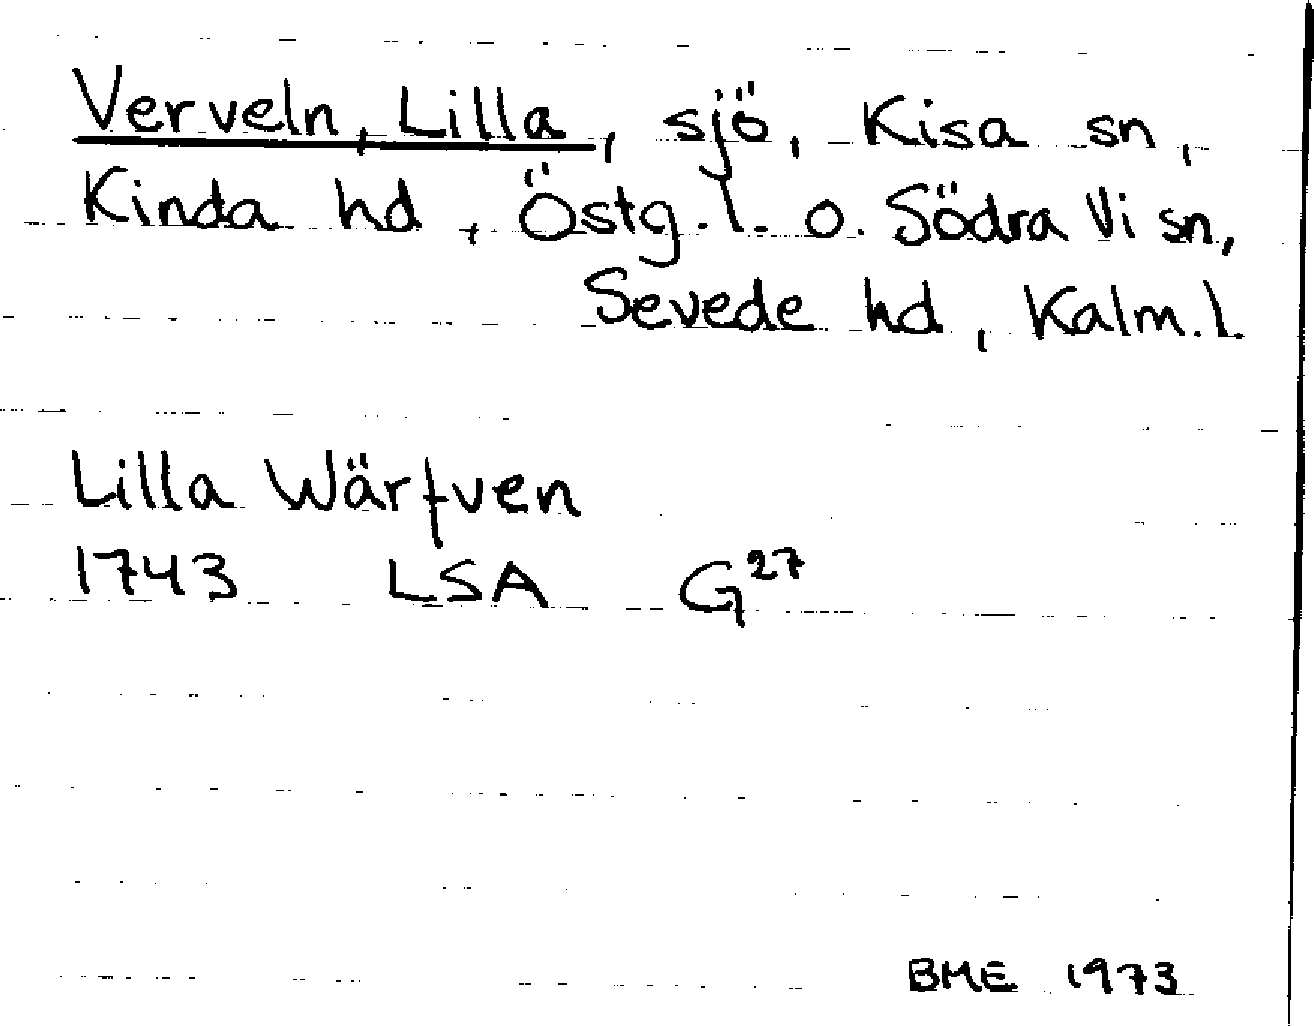 Verveln, Lilla, sjö, Kisa sn,
Kinda hd, Östg.l. o. Södra Vi sn,
Sevede hd, Kalm.l.
Lilla Wärfven
1743 LSA G27
BME 1973